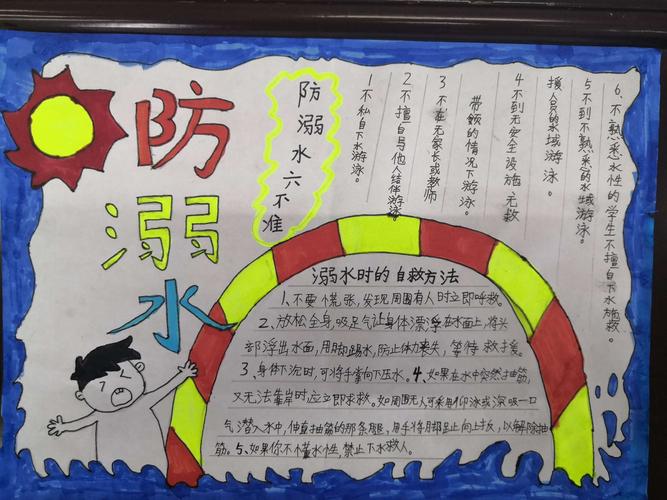 防溺水
防溺水六不准
1 不私自下水游泳。
2 不擅自与他人结伴游泳。
3 不在无家长或教师
带领的情况下游泳。
4 不到无安全设施无救
援人员的水域游泳。
5 不到不熟悉的水域游泳。
6、不熟悉水性的学生不擅自下水施救。
溺水时的自救方法
1、不要慌张,发现周围有人时立即呼救。
2、放松全身,吸足气让身体漂浮在水面上,将头
部浮出水面,用脚踢水,防止体力丧失,等待救援。
3、身体下沉时,可将手掌向下压水。4、如果在水中突然抽筋,
又无法靠岸时应立即求救。如周围无人可采用仰泳或深吸一口
气潜入水中,伸直抽筋的那条腿,用手将脚趾向上扳,以解除抽
筋。5、如果你不懂水性,禁止下水救人。